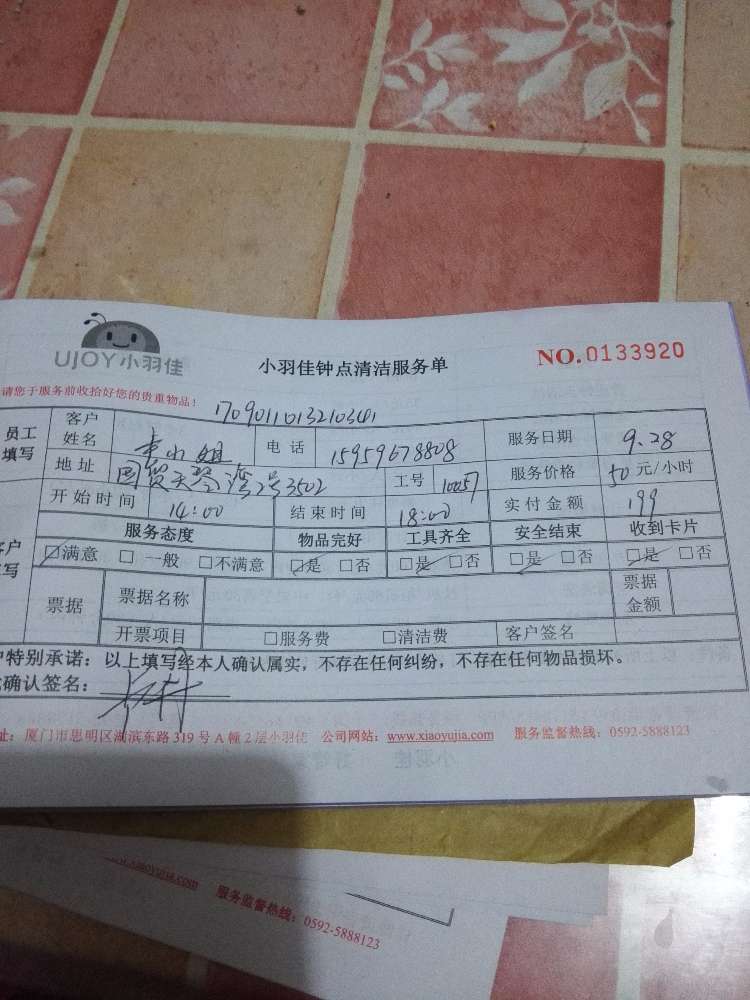 UJOY小羽佳
小羽佳钟点清洁服务单
NO.0133920
请您于服务前收拾好您的贵重物品!
员工填写 客户姓名 李小姐 电话 15959678808 服务日期 9.28
地址 国贸天琴湾2号3502 工号 10057 服务价格 50元/小时
开始时间 14:00 结束时间 18:00 实付金额 199
服务态度 物品完好 工具齐全 安全结束 收到卡片
□满意 □一般 □不满意 □是 □否 □是 □否 □是 □否 □是 □否
票据 票据名称 票据金额
开票项目 □服务费 □清洁费 客户签名
特别承诺:以上填写经本人确认属实,不存在任何纠纷,不存在任何物品损坏。
确认签名:
址:厦门市思明区湖滨东路319号A幢2层小羽佳 公司网站:www.xiaoyujia.com 服务监督热线:0592-5888123
.xiaoyujia.com 服务监督热线:0592-5888123